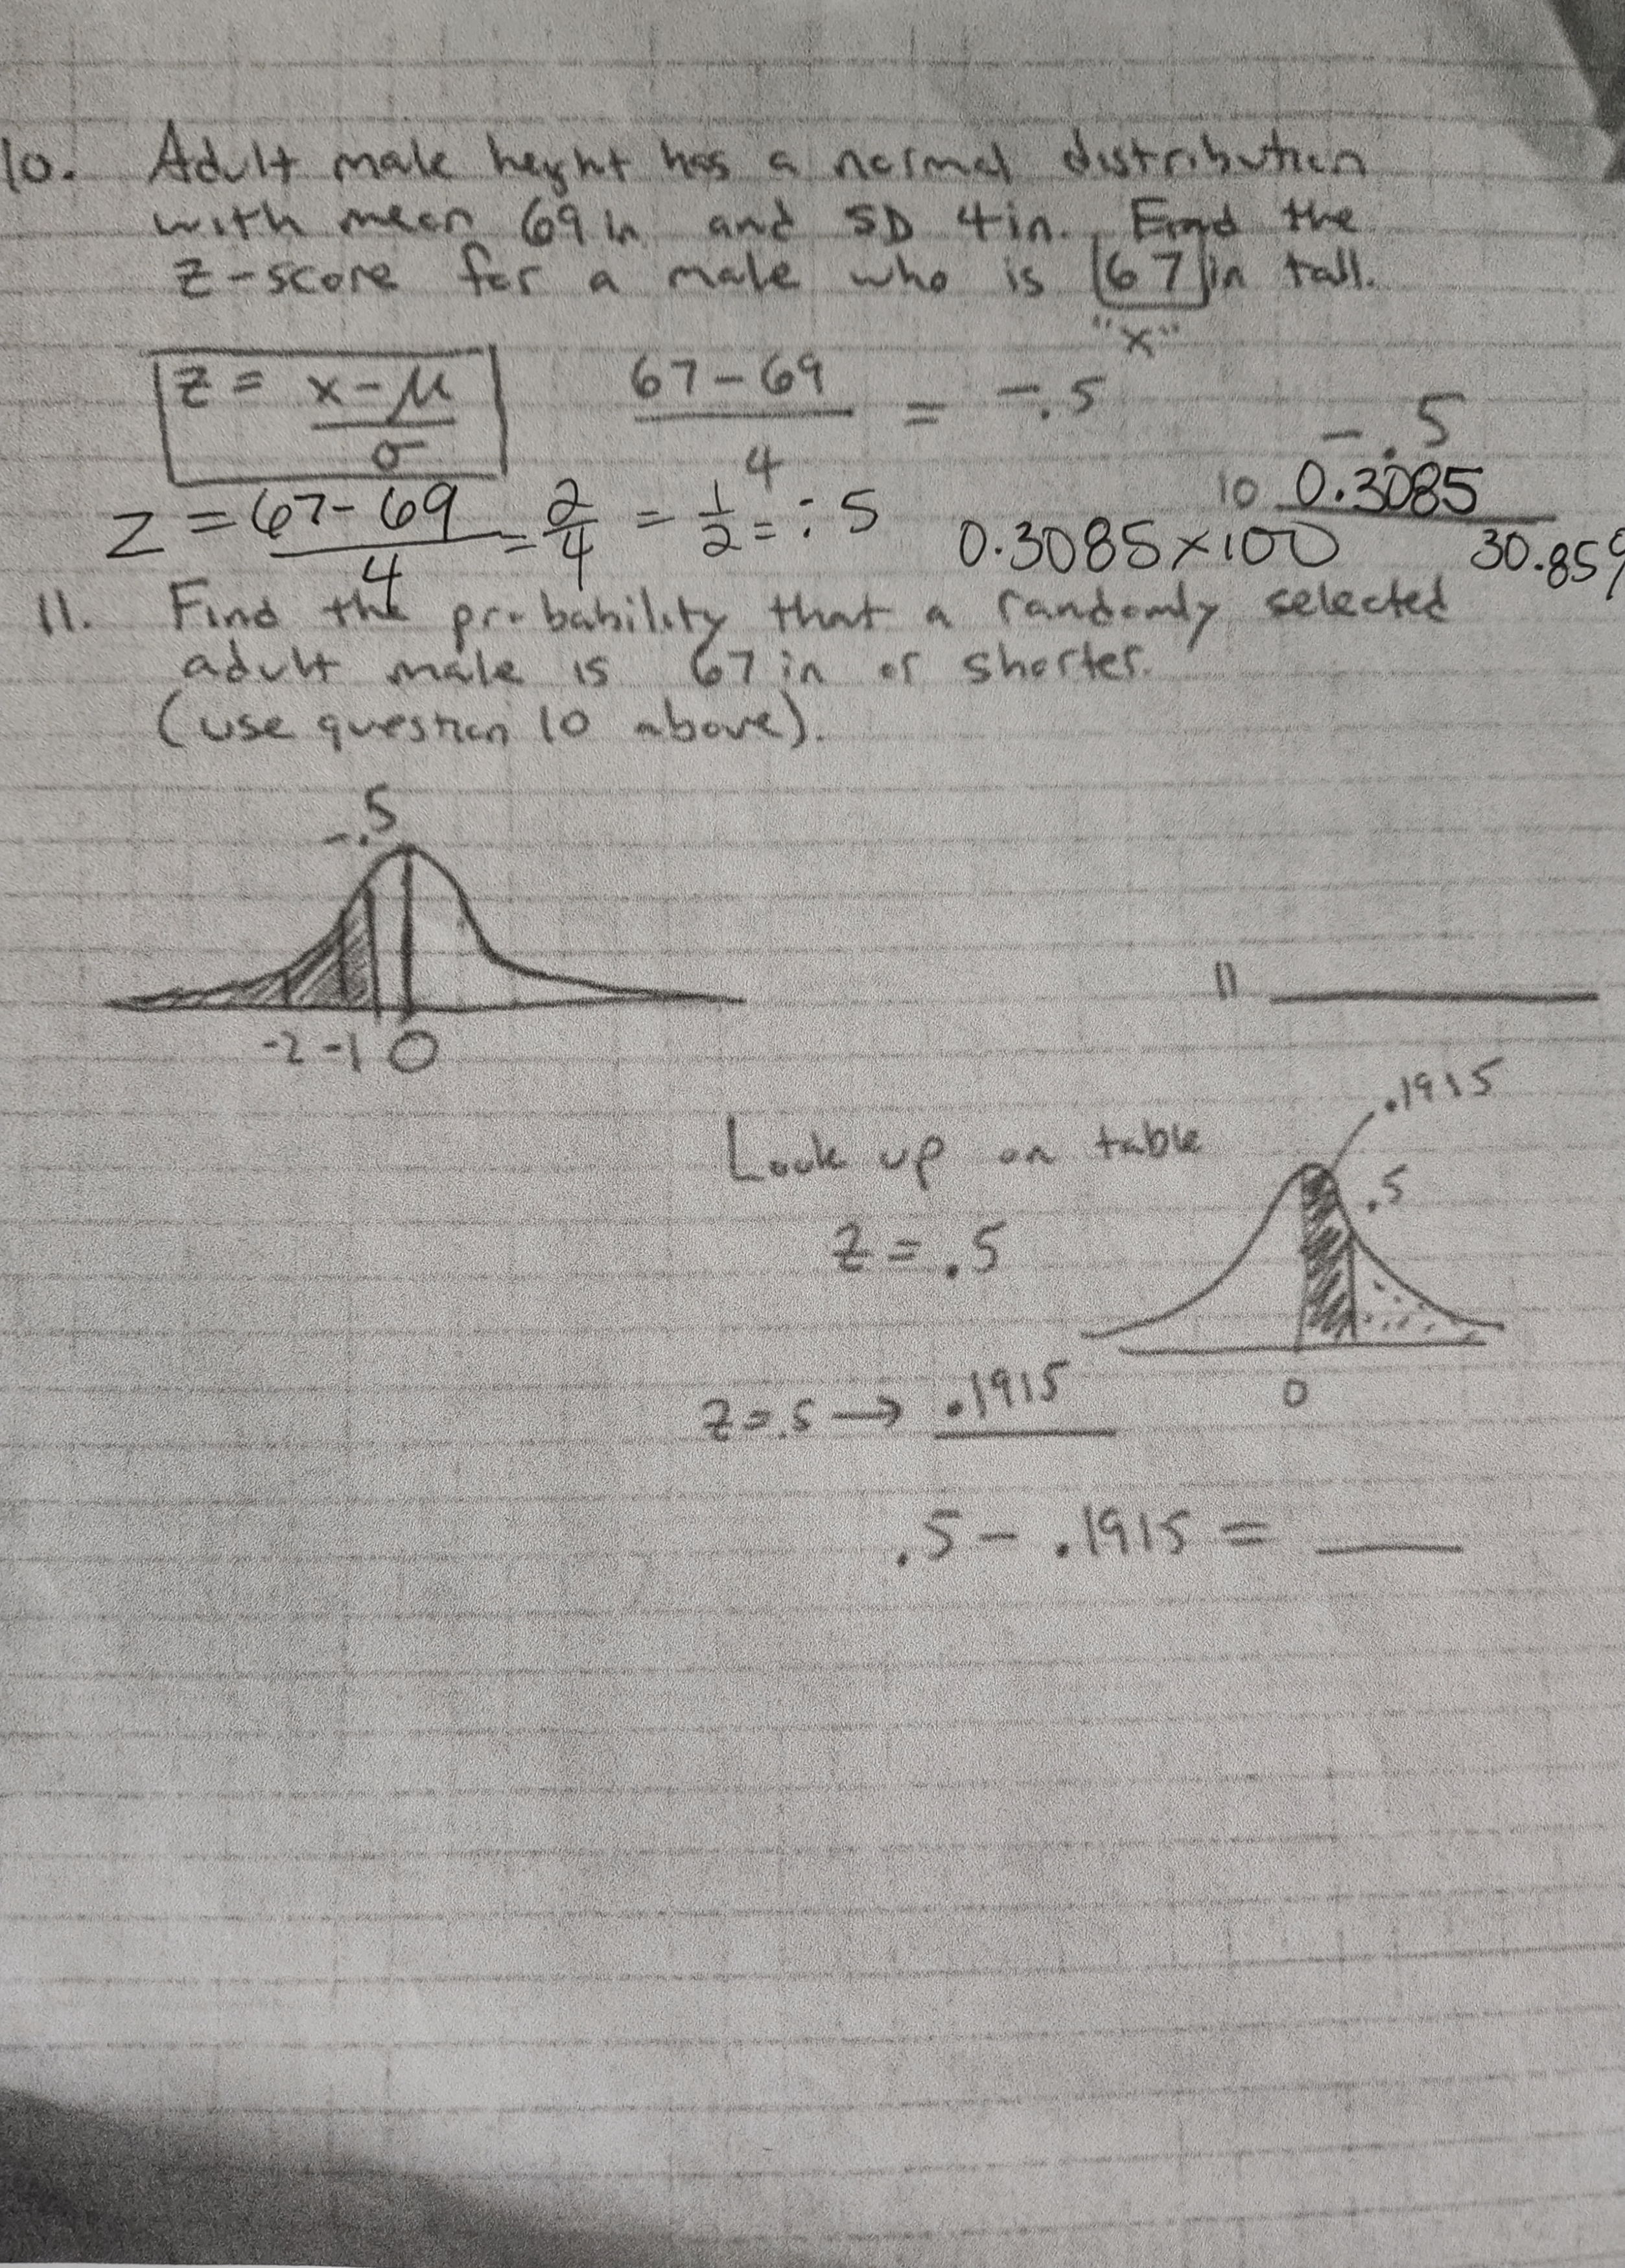 10. Adult male height has a normal distribution
with mean 69 in and SD 4 in. Find the
z-score for a male who is 67 in tall.
"x"
z = x-μ/σ 67-69/4 = -.5
-.5
z = 67-69/4 = 2/4 = 1/2 = .5
10 0.3085
0.3085×100 30.85%
11. Find the probability that a randomly selected
adult male is 67 in or shorter.
(use question 10 above).
-.5
-2 -1 0
11
.1915
Look up on table
.5
z = .5
0
z=.5 → .1915
.5 - .1915 =